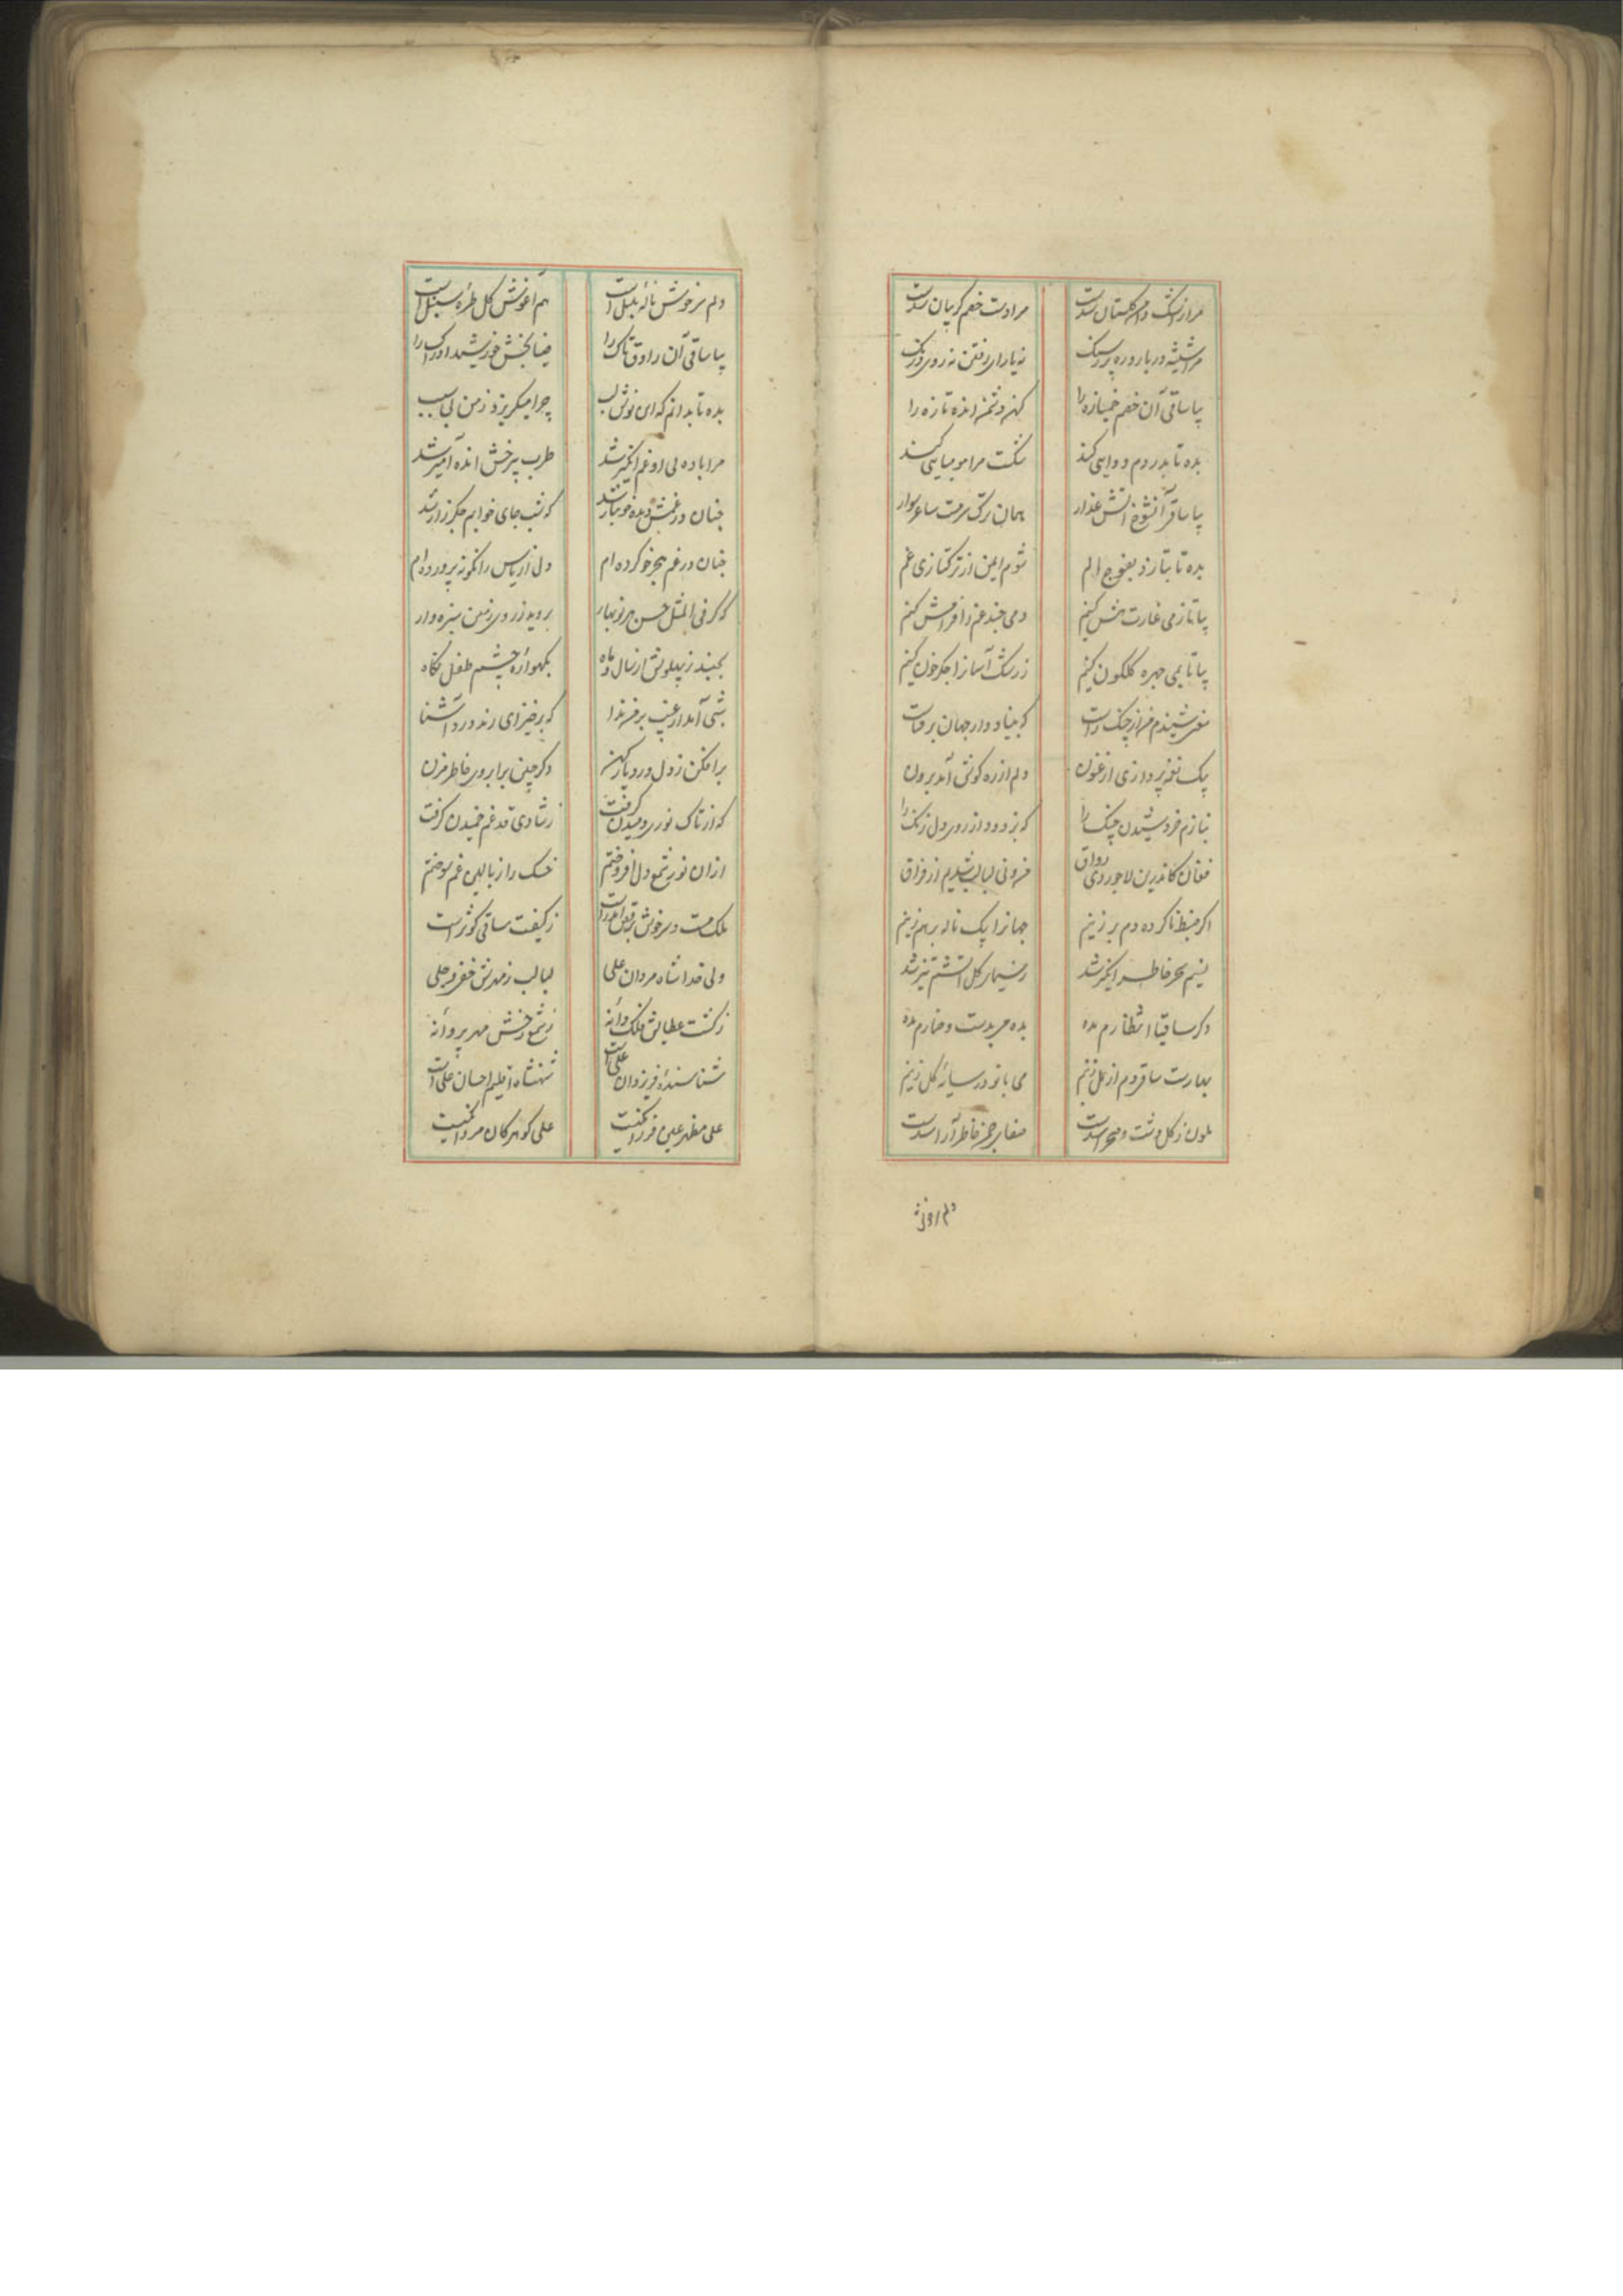 مرا از اشک دامن گلستان شدست مرا دست خصم گریبان شدست
مرا شیشه در بار و ره پر ز سنگ نه یارای رفتن نه روی درنگ
بیا ساقی آن خصم خمیازه را کهن دشمن انده تازه را
بده تا بدردم دوایی کند شکست مرا مومیایی کند
بیا ساقی آن شوخ آتش عذار همان ترک سرمست ساغر سوار
بده تا بتازد بفوج الم شوم ایمن از ترکتازی غم
بیا تا ز می غارت هش کنیم دمی چند غم را فرامش کنیم
بیا تا بمی چهره گلگون کنیم ز رشک آسمان را جگر خون کنیم
مغنی شنیدم من از چنگ راست که بنیاد دار جهان بر فناست
بیک نغمه پردازی ارغنون دلم از ره گوش آمد برون
بنازم فرو شیدن چنگ را که بزدود از روی دل زنگ را
فغان کاندرین لاجوردی رواق فزونی لبالب شدیم از فراق
اگر ضبط ناکرده دم بر زنیم جهان را بیک ناله برهم زنیم
نسیم سحر خاطر انگیز شد ز سیمای گل آتشم تیز شد
دگر ساقیا انتظارم مده بده می بدست و خمارم مده
بهارست ساقی دم از مل زنیم می با تو در سایه گل زنیم
ملون ز گل دشت و صحرا شدست صفای چمن خاطر آرا شدست
دلم سرخوش ناله بلبل است هم آغوش گل طره سنبل است
بیا ساقی آن راوق تاک را ضیا بخش خورشید ادراک را
بده تا بدانم که ای نوش لب چرا میگریزد ز من بی سبب
مرا باده بی او غم انگیز شد طرب بیرخش انده آمیز شد
چنان در غمش دیده خونبار شد که شب جای خوابم جگرزار شد
چنان در غم هجر خو کرده ام دلی از یاس را نگونه پرورده ام
که گر فی المثل حسن هر نوبهار بروید ز روی زمین سبزه وار
بجنبد ز پهلوش از سال و ماه بگهواره چشم طفل نگاه
شبی آمد از غیب بر من ندا که برخیز ای رند درد آشنا
برافکن ز دل درد یار کهن دگر چین بر ابروی خاطر مزن
که از تاک نوری دمیدن گرفت ز شادی قد غم خمیدن گرفت
از آن نور شمع دل افروختم خسک را ز بالین غم سوختم
ملک مست و سرخوش برقص اندر است ز کیفیت ساقی کوثر است
ولی خدا شاه مردان علی لبالب ز مهرش خفی و جلی
ز کشت عطایش فلک دانه ز شمع رخش مهر پروانه
شناسنده فر یزدان علی است شهنشاه اقلیم احسان علی است
علی مظهر عین فرزانگیست علی گوهر کان مردانگیست
دلم سرخوش